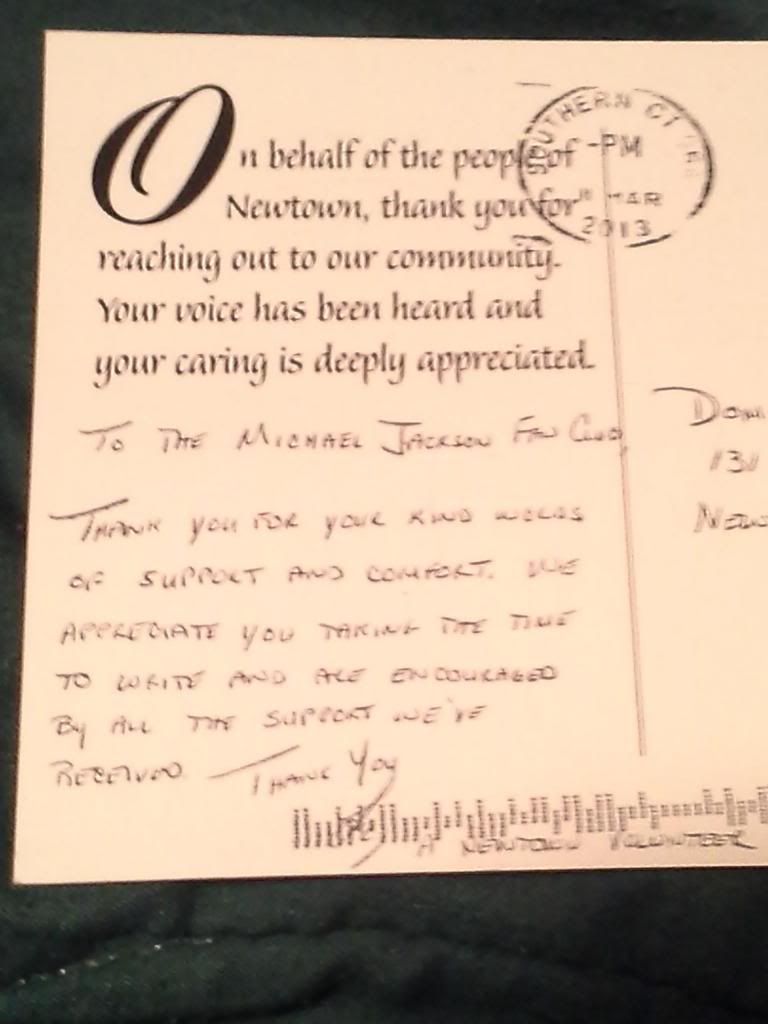 On behalf of the people of
Newtown, thank you for
reaching out to our community.
Your voice has been heard and
your caring is deeply appreciated.
SOUTHERN CT
PM
MAR
2013
TO THE MICHAEL JACKSON FAN CLUB,
THANK YOU FOR YOUR KIND WORDS
OF SUPPORT AND COMFORT. WE
APPRECIATE YOU TAKING THE TIME
TO WRITE AND ARE ENCOURAGED
BY ALL THE SUPPORT WE'VE
RECEIVED. THANK YOU
A NEWTOWN VOLUNTEER